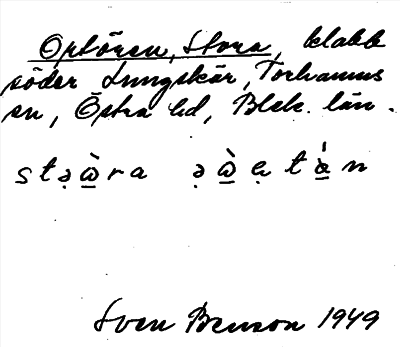 Ortören, Stora, klabb
söder Lungskär, Torhamns
sn, Östra hd, Blek. län.
stạὼ̲ra ạὼ̲ẹtά̲n
Sven Benson 1949